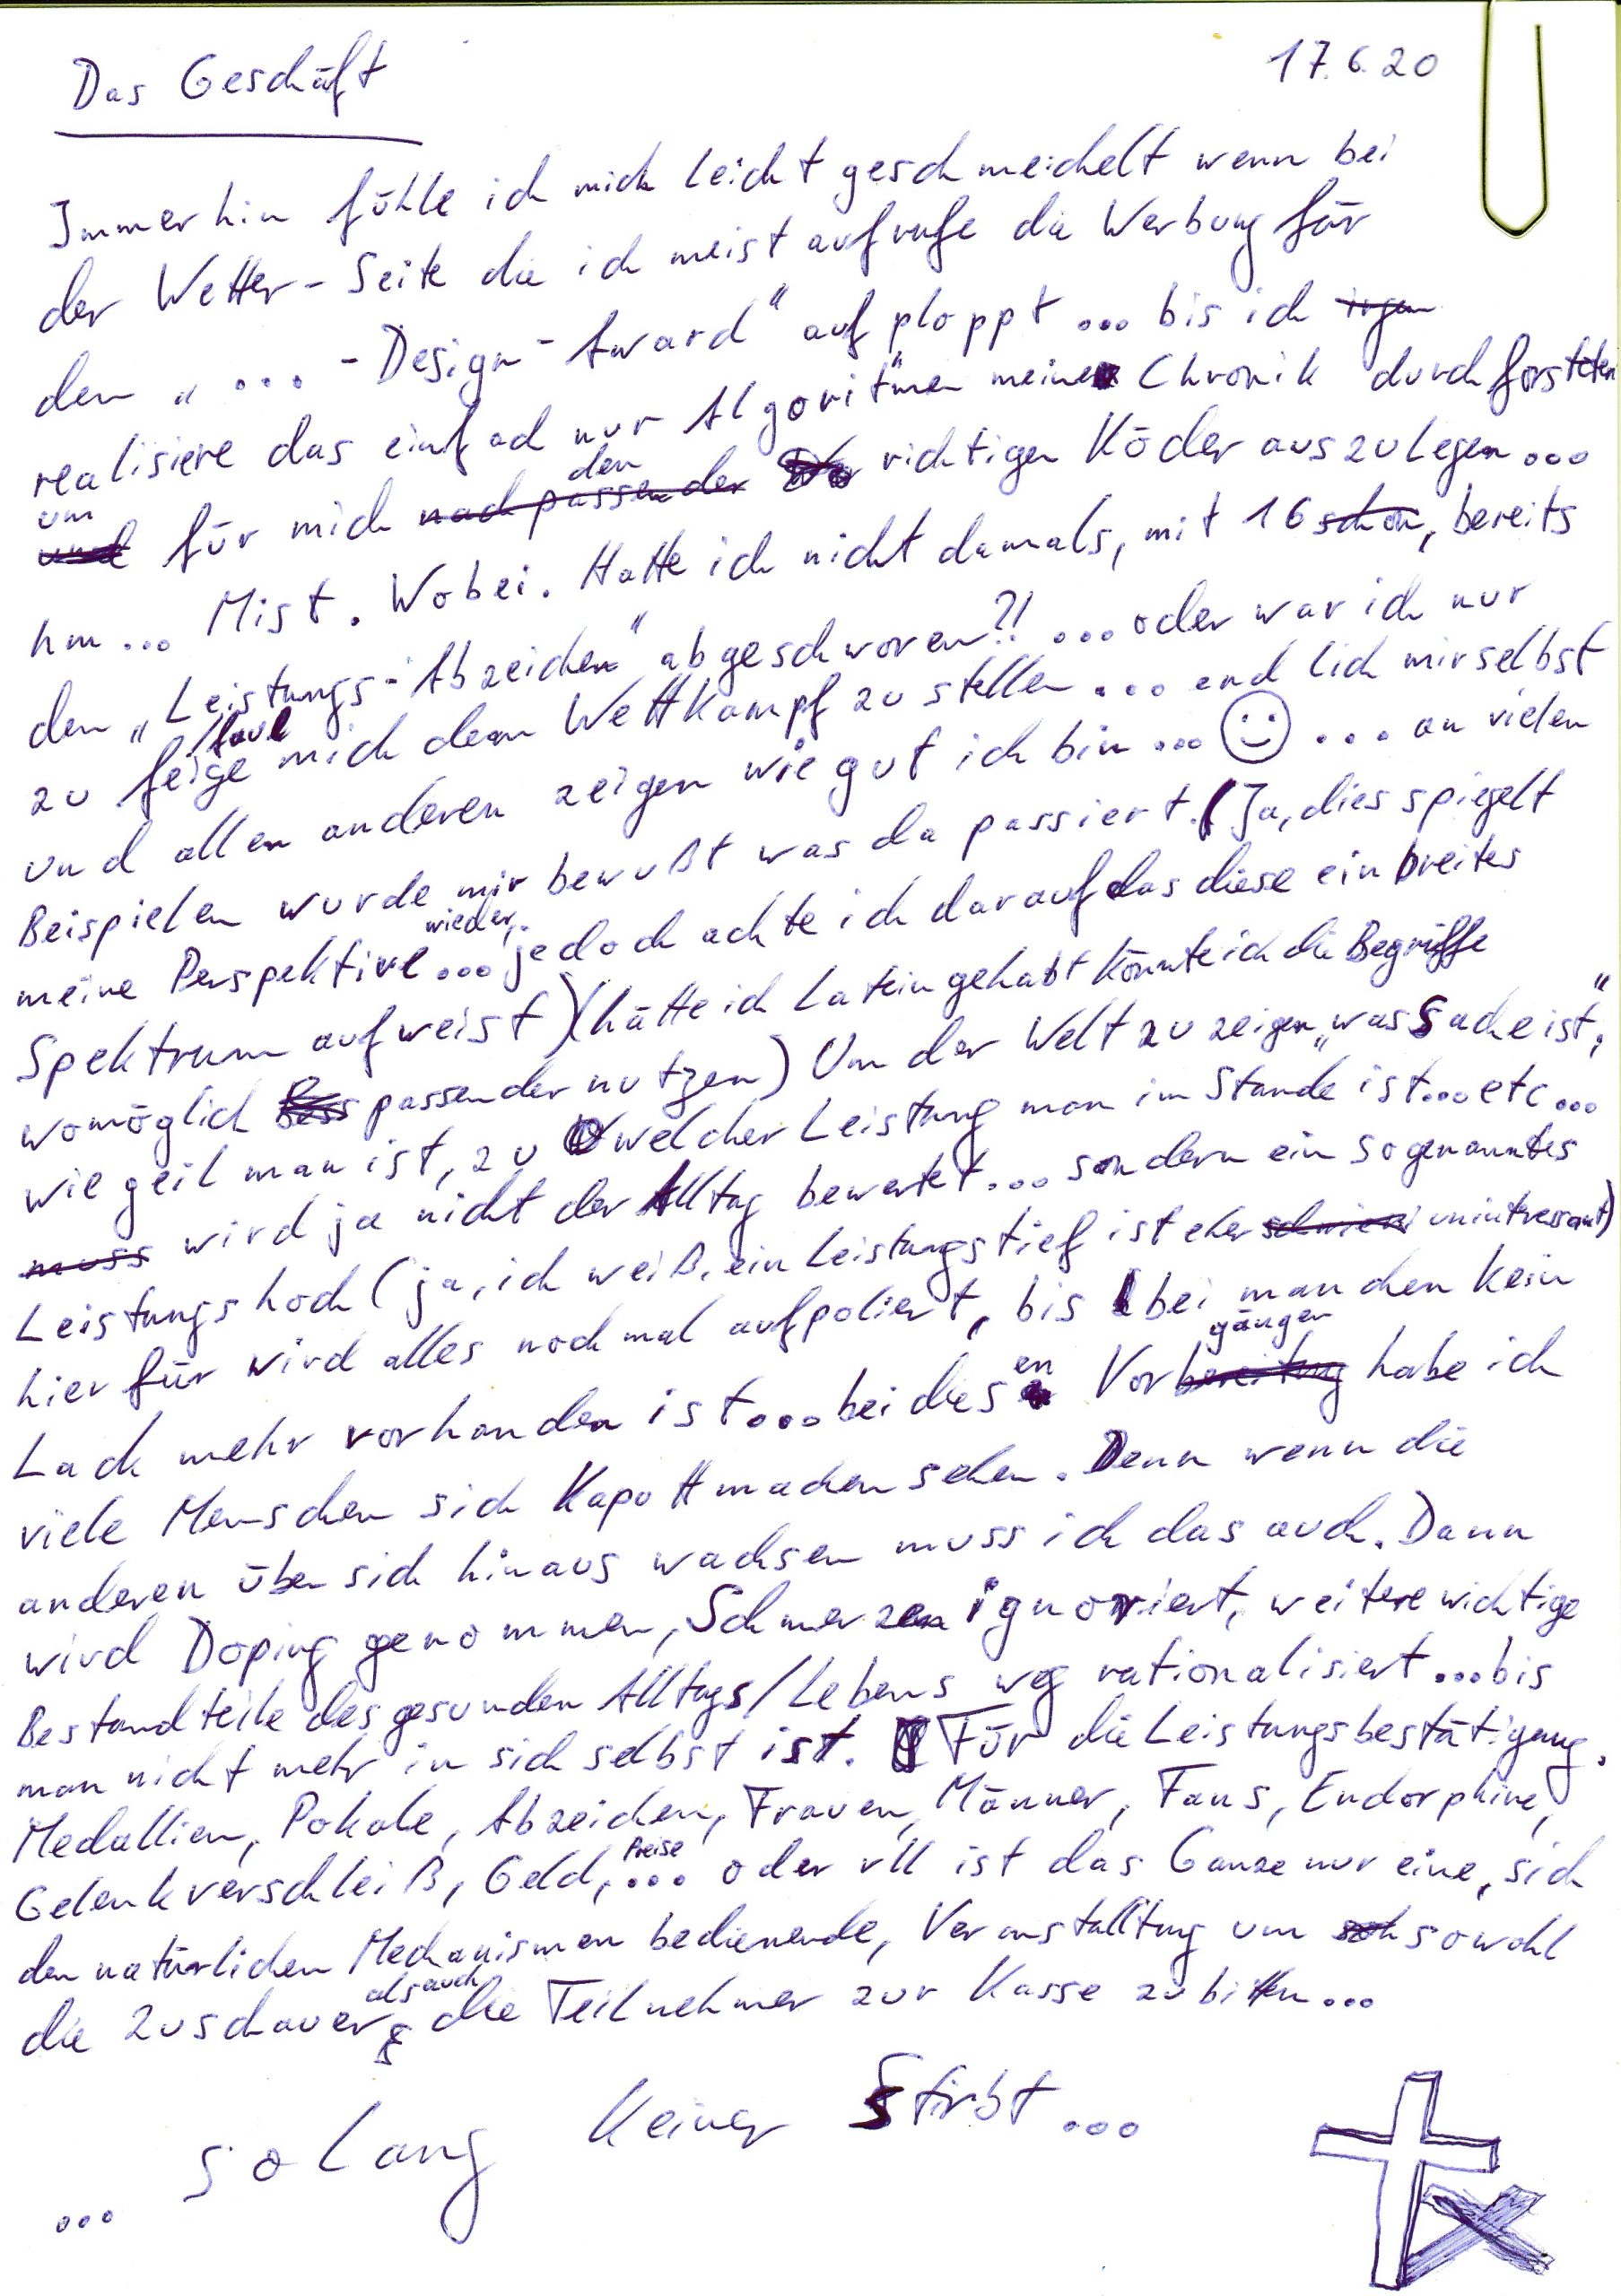 Das Geschäft
17.6.20
Immerhin fühle ich mich leicht geschmeichelt wenn bei
der Wetter-Seite die ich meist aufrufe die Werbung für
den „... -Design-Award" aufploppt ... bis ich irgen
realisiere das einfach nur Algoritmen meine Chronik durchforsten
um für mich nach passender den richtigen Köder auszulegen...
hm... Mist. Wobei. Hatte ich nicht damals, mit 16 schon, bereits
den „Leistungs-Abzeichen" abgeschworen?! ... oder war ich nur
zu feige/faul mich dem Wettkampf zu stellen ... endlich mir selbst
und allen anderen zeigen wie gut ich bin ... ☺ ... an vielen
Beispielen wurde mir bewußt was da passiert. (Ja, dies spiegelt
meine Perspektive wieder,... jedoch achte ich darauf das diese ein breites
Spektrum aufweist) (hätte ich Latein gehabt könnte ich die Begriffe
womöglich passender nutzen) Um der Welt zu zeigen „was Sache ist",
wie geil man ist, zu welcher Leistung man im Stande ist...etc...
muss wird ja nicht der Alltag bewertet... sondern ein sogenanntes
Leistungshoch (ja, ich weiß, ein Leistungstief ist eher unintressant)
hierfür wird alles nochmal aufpoliert, bis bei manchen kein
Lack mehr vorhanden ist... bei diesen Vorgängen habe ich
viele Menschen sich kapott machen sehen. Denn wenn die
anderen über sich hinaus wachsen muss ich das auch. Dann
wird Doping genommen, Schmerzen ignoriert, weitere wichtige
Bestandteile des gesunden Alltags/Lebens weg rationalisiert...bis
man nicht mehr in sich selbst ist. Für die Leistungsbestätigung.
Medallien, Pokale, Abzeichen, Frauen, Männer, Fans, Endorphine,
Gelenkverschleiß, Geld, Preise... oder vll ist das Ganze nur eine, sich
den natürlichen Mechanismen bedienende, Veranstalltung um sowohl
die Zuschauer als auch die Teilnehmer zur Kasse zu bitten...
... solang keiner stirbt ...